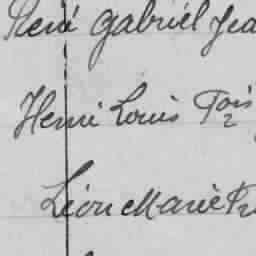 René Gabriel Jea
Henri Louis Fois
Léon Marie Fr